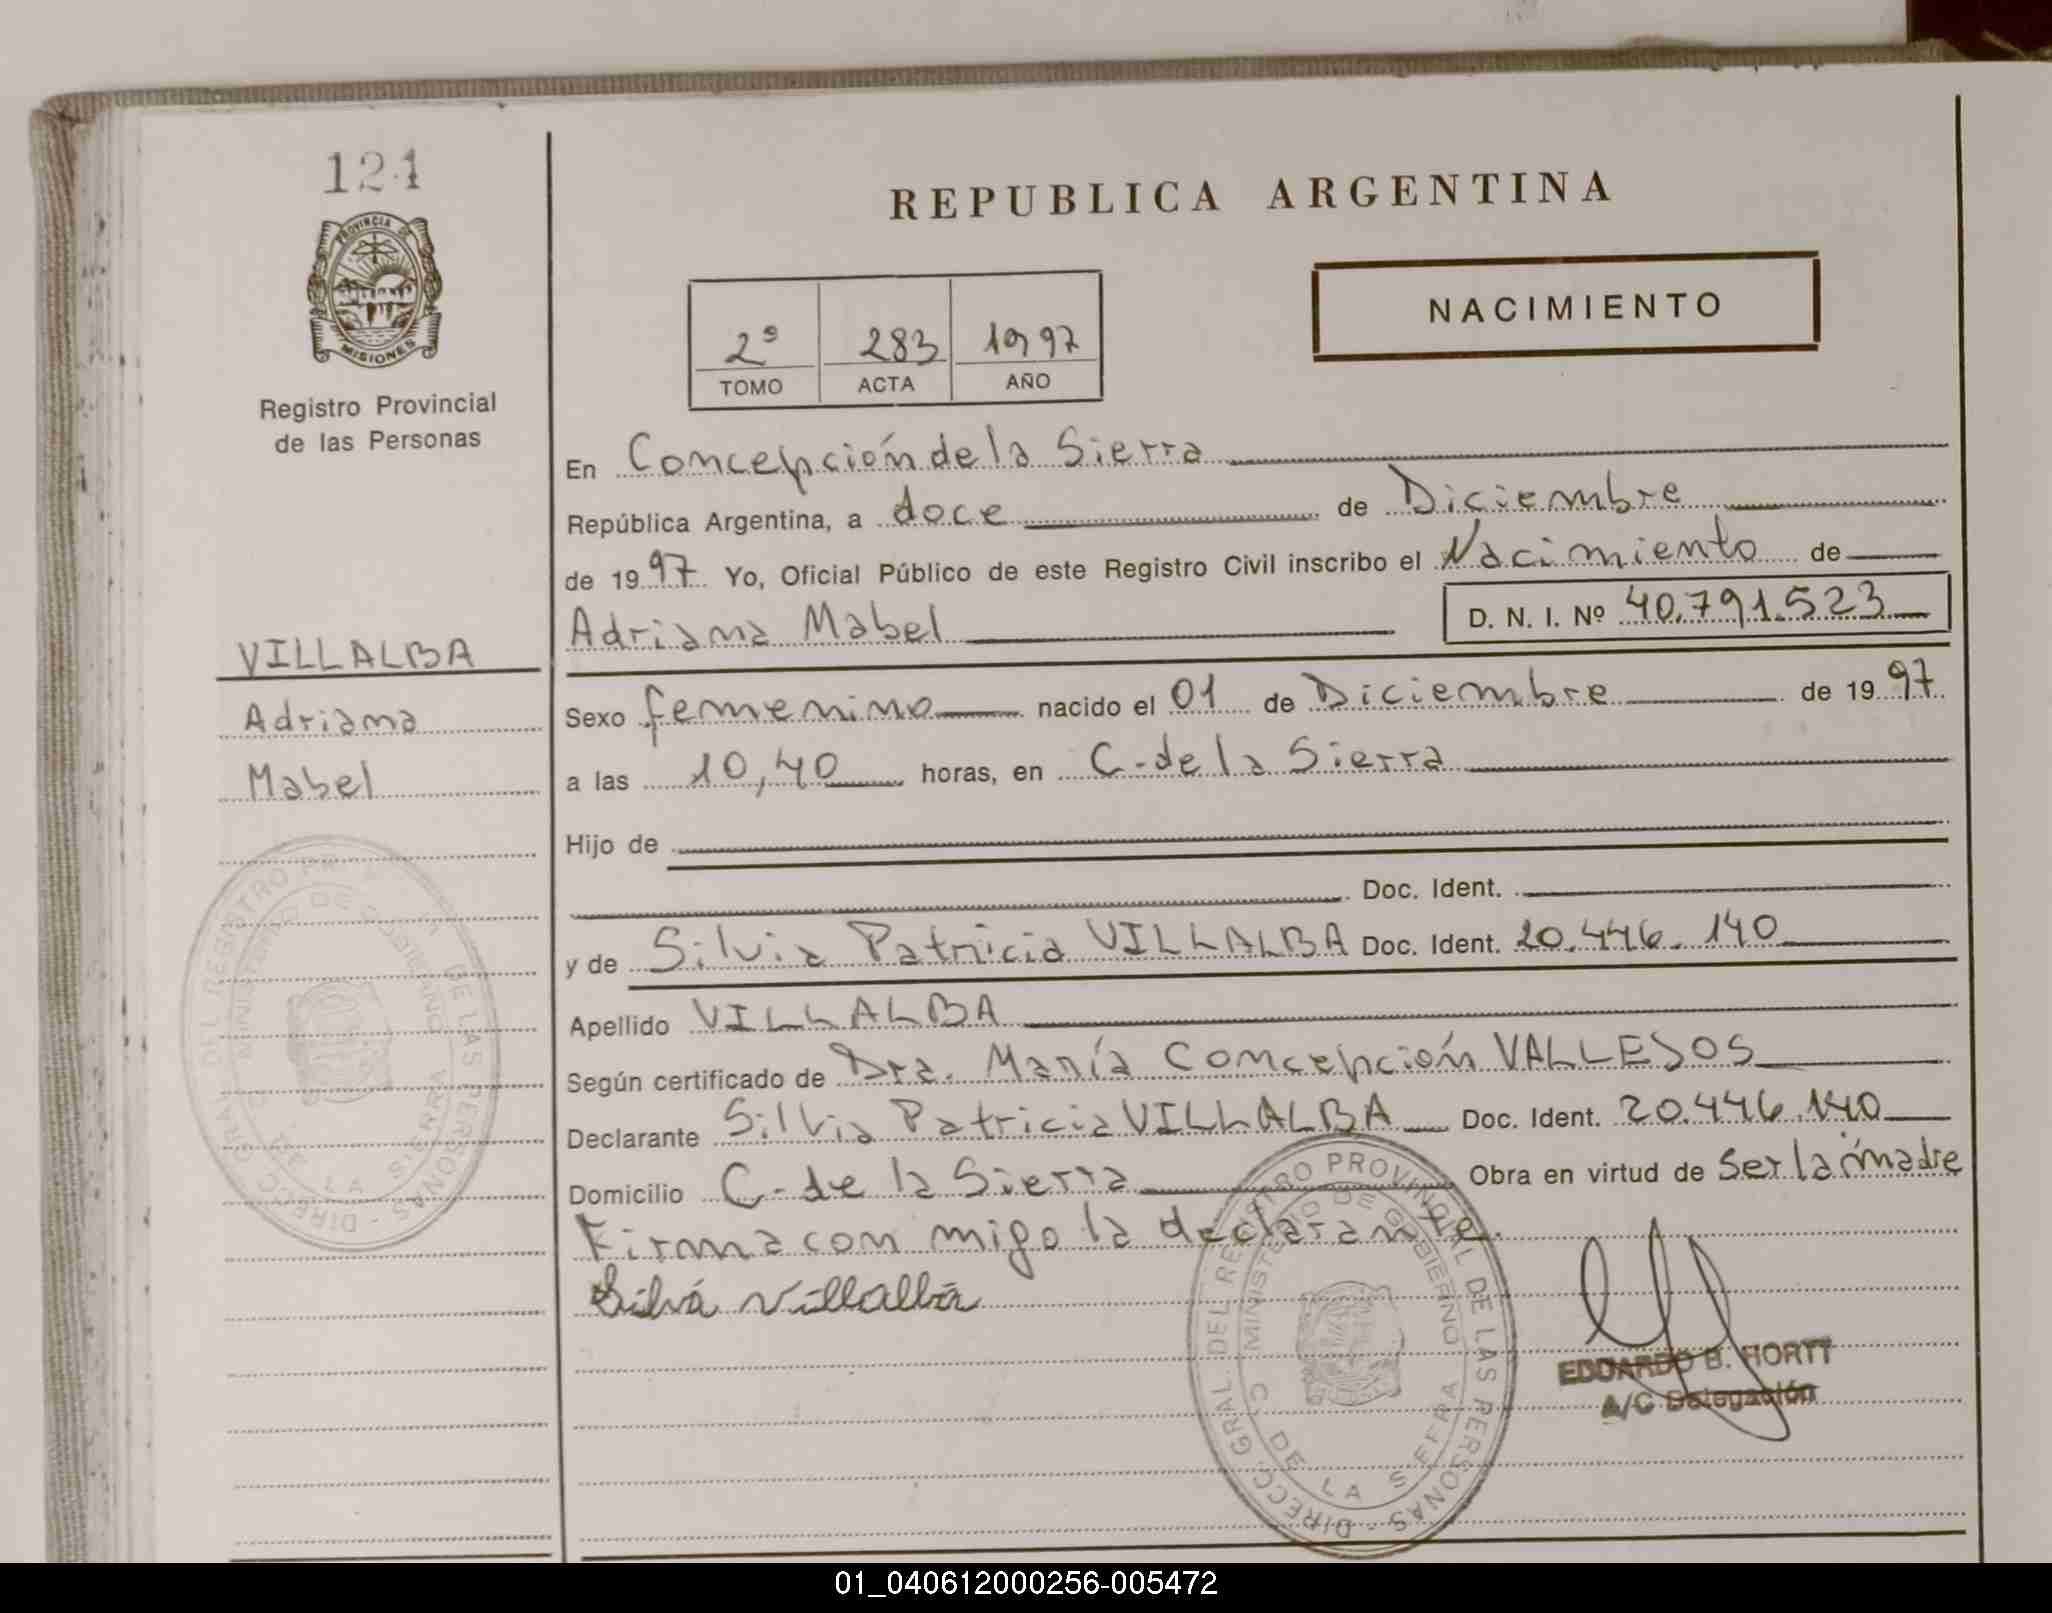 124
PROVINCIA DE
MISIONES
Registro Provincial
de las Personas
VILLALBA
Adriana
Mabel
REPUBLICA ARGENTINA
NACIMIENTO
2º 283 1997
TOMO ACTA AÑO
En Concepción de la Sierra
República Argentina, a doce de Diciembre
de 1997 Yo, Oficial Público de este Registro Civil inscribo el Nacimiento de
Adriana Mabel D. N. I. Nº 40.791.523
Sexo femenino nacido el 01 de Diciembre de 1997
a las 10,40 horas, en C. de la Sierra
Hijo de
Doc. Ident.
y de Silvia Patricia VILLALBA Doc. Ident. 20.446.140
Apellido VILLALBA
Según certificado de Dra. María Concepción VALLEJOS
Declarante Silvia Patricia VILLALBA Doc. Ident. 20.446.140
Domicilio C. de la Sierra Obra en virtud de ser la madre
Firma con migo la declarante.
Silvia Villalba
DIRECC. GRAL. DEL REGISTRO PROVINCIAL DE LAS PERSONAS
MINISTERIO DE GOBIERNO
C. DE LA SIERRA
EDUARDO B. HORTT
A/C Delegación
01_040612000256-005472